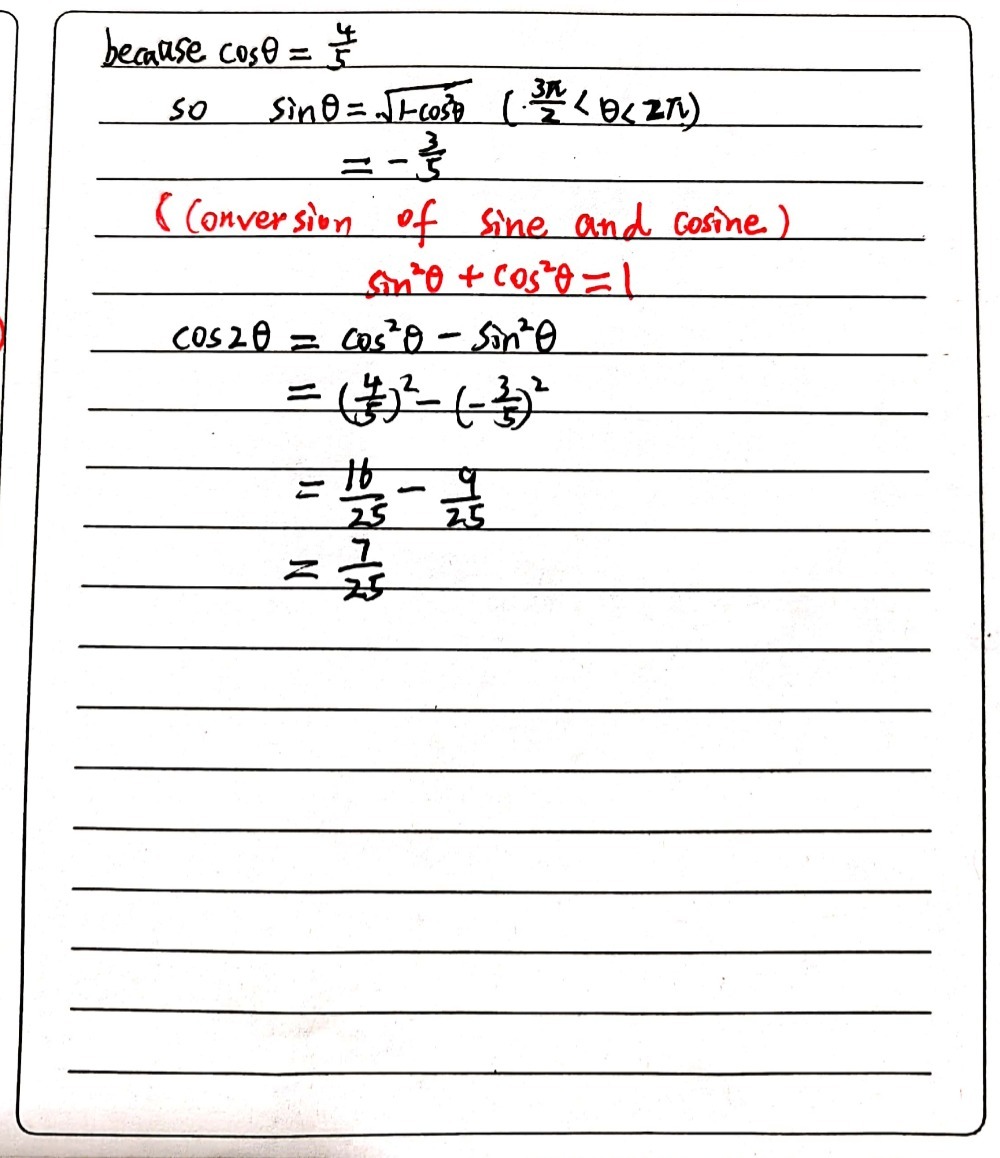 because cosθ = 4/5
so sinθ = √1-cos²θ (3π/2 < θ < 2π)
= - 3/5
(Conversion of sine and cosine)
sin²θ + cos²θ = 1
cos2θ = cos²θ - sin²θ
= (4/5)² - (-3/5)²
= 16/25 - 9/25
= 7/25